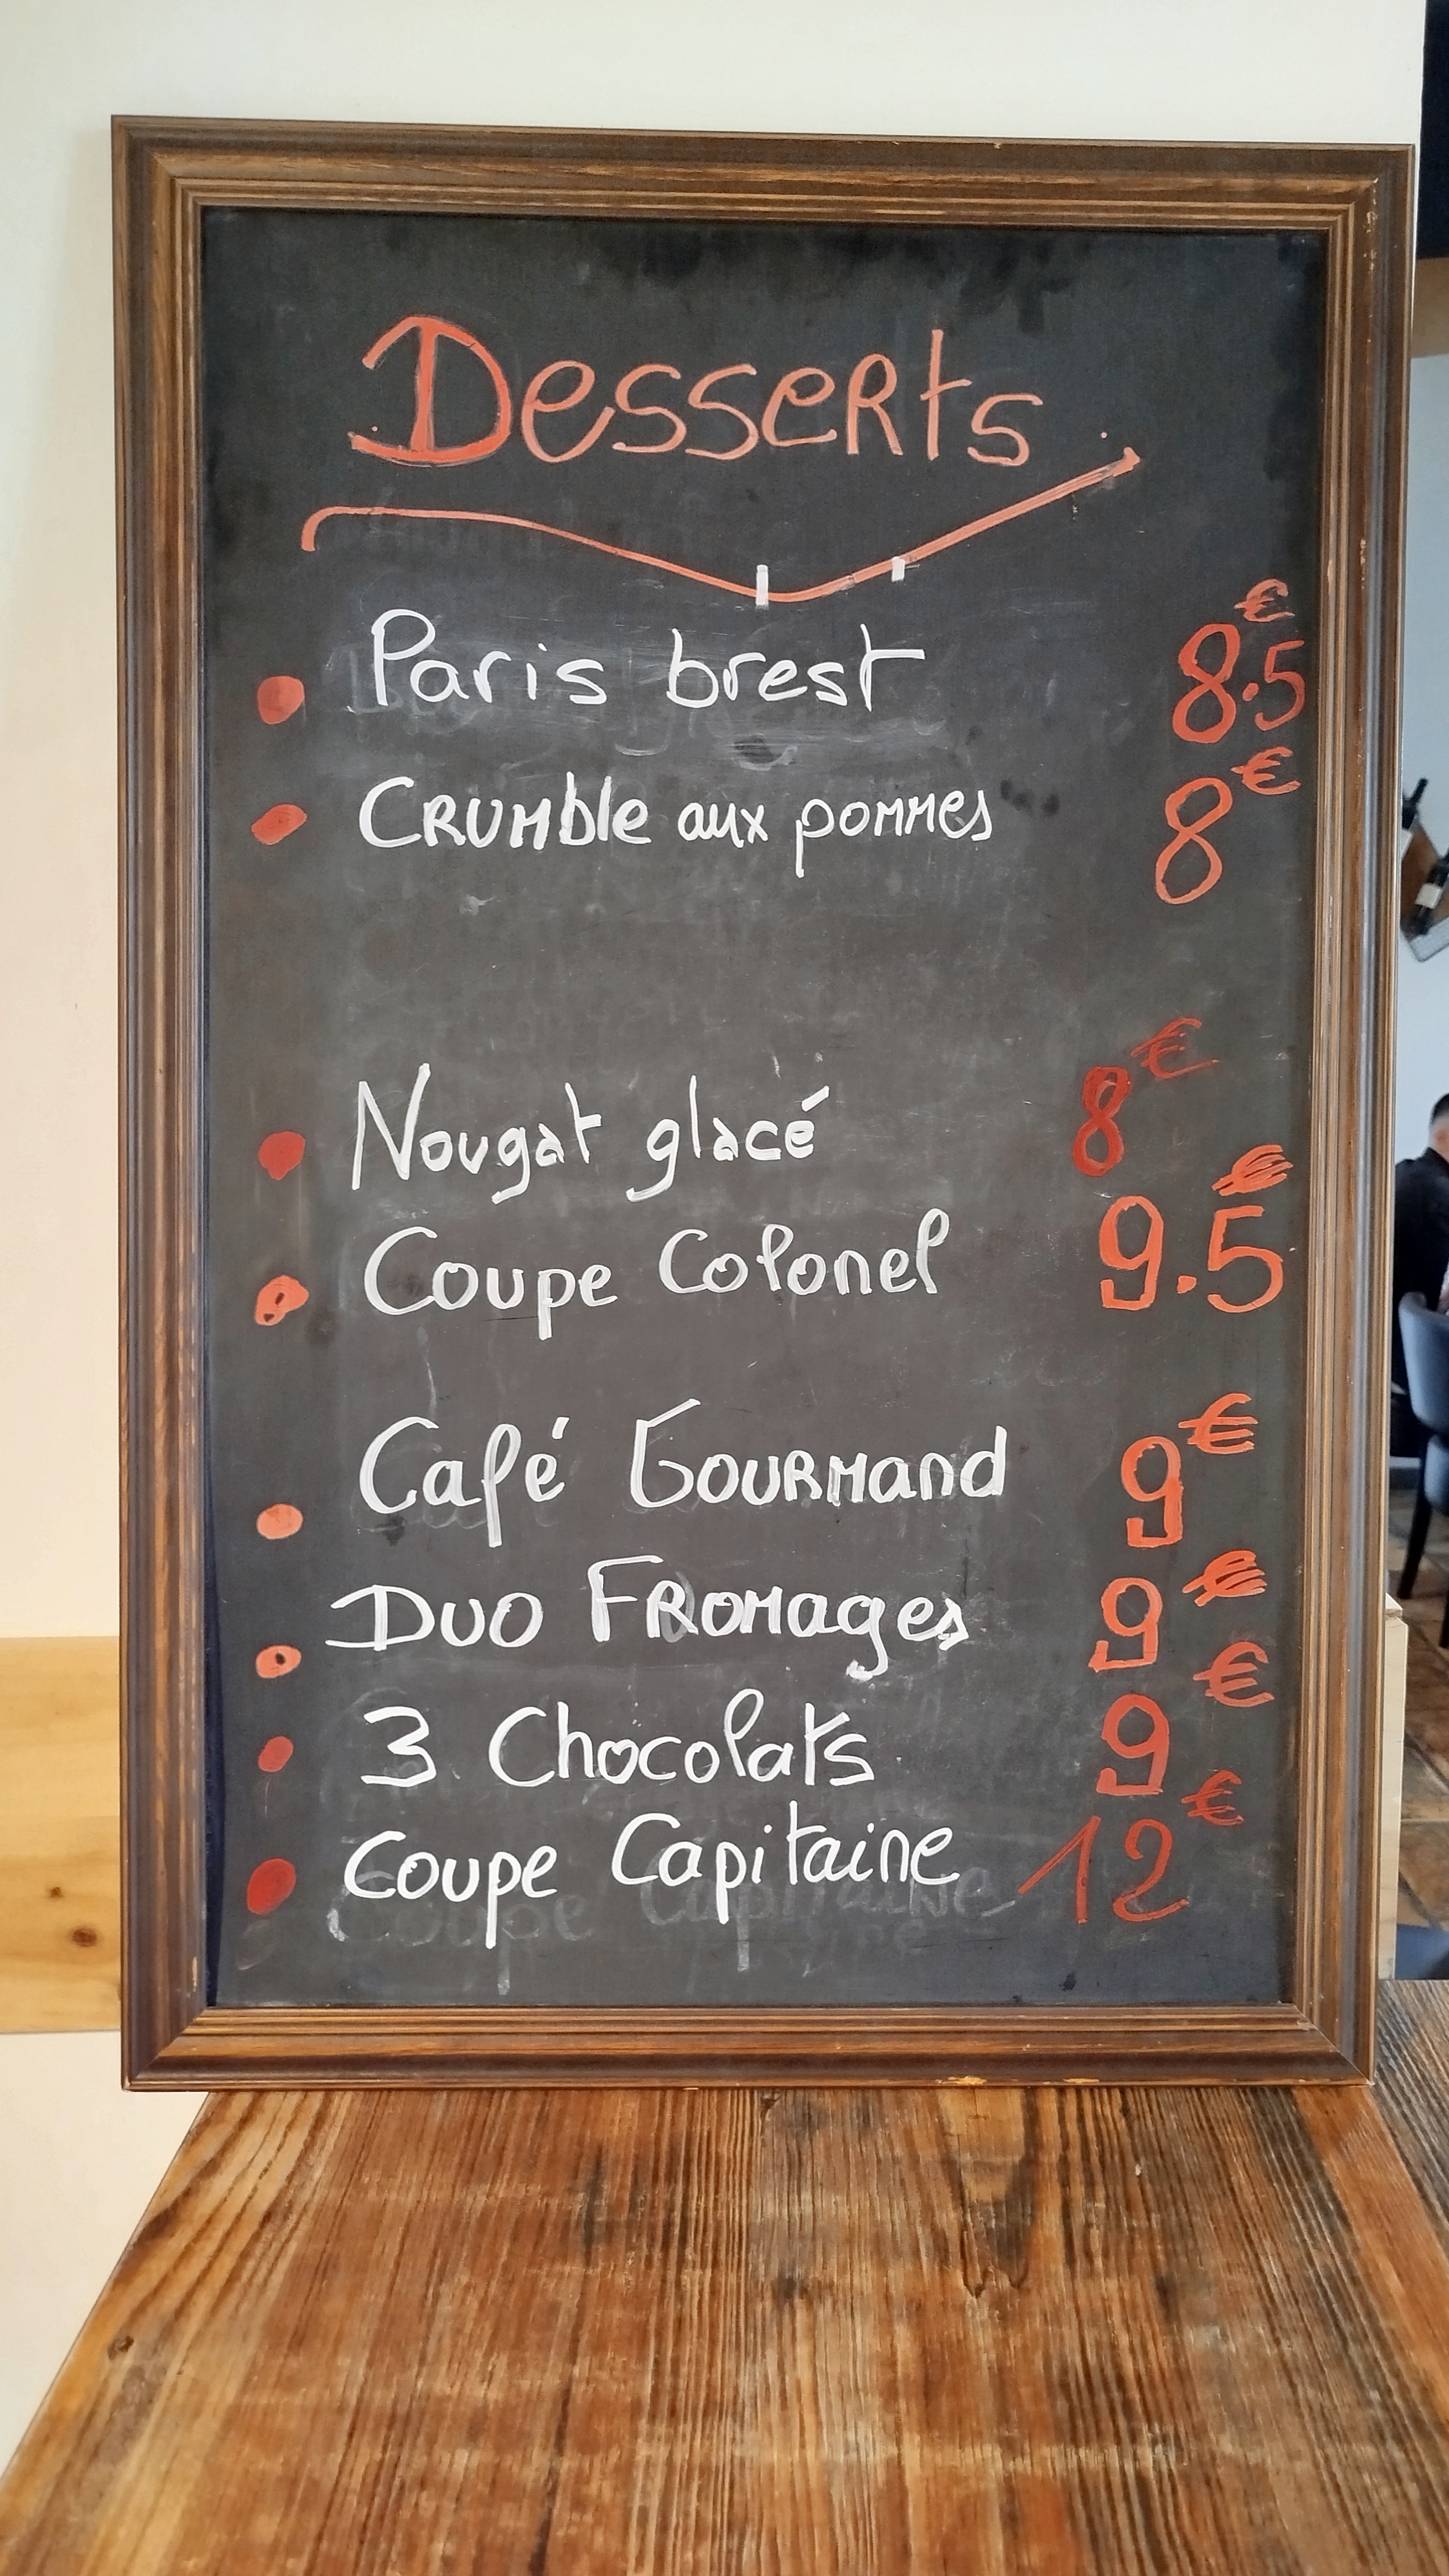 Desserts
Paris brest 8.5€
Crumble aux pommes 8€
Nougat glacé 8€
Coupe Colonel 9.5€
Café Gourmand 9€
Duo Fromages 9€
3 Chocolats 9€
Coupe Capitaine 12€